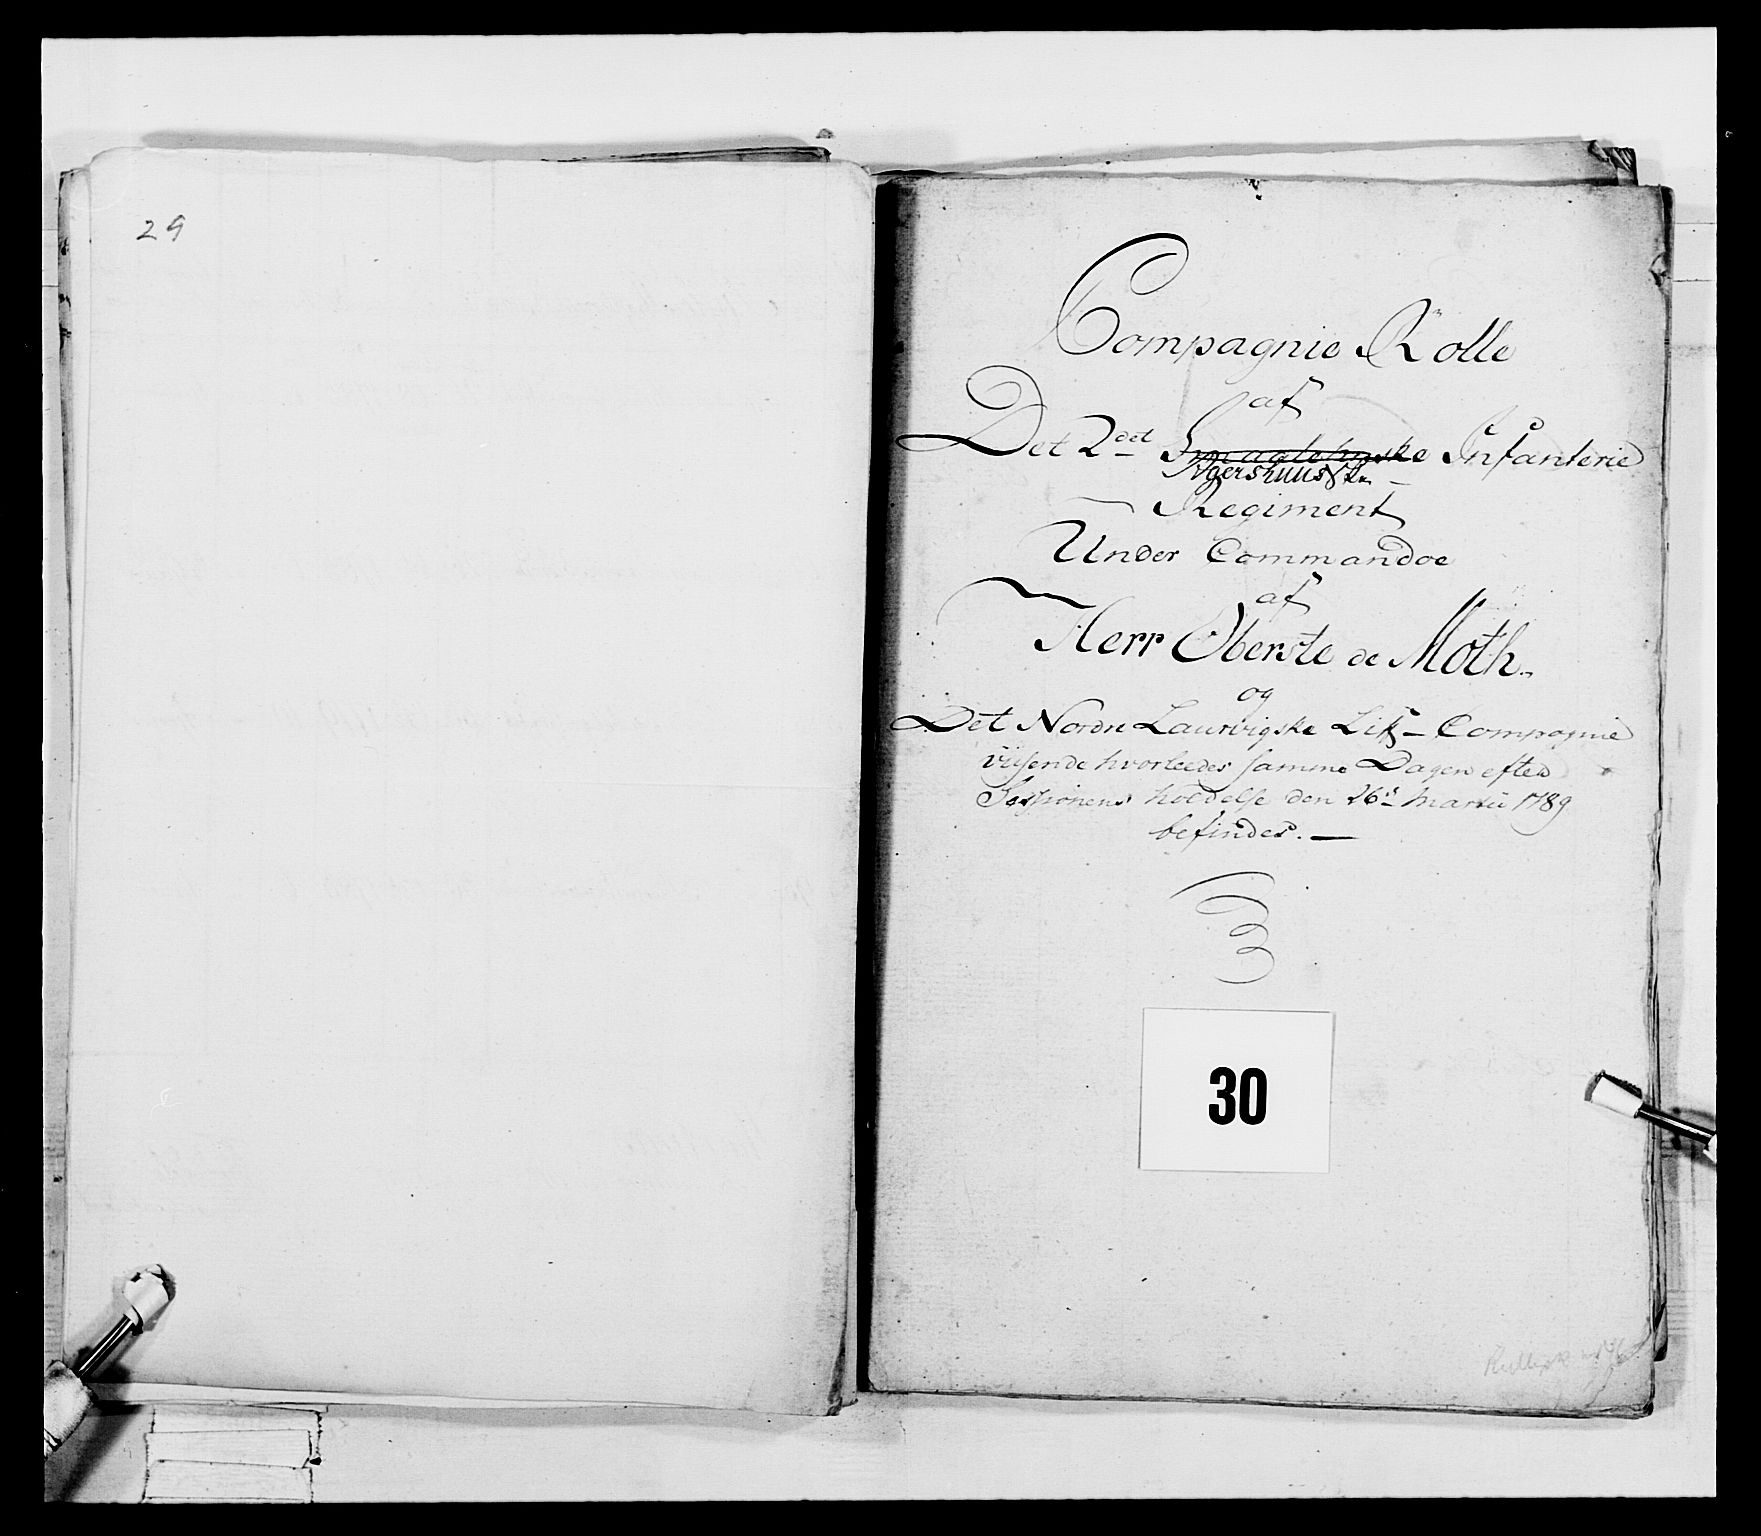 29
Compagnie Rolle
af
Det 2det Smaalehnske Infanterie
Agershuusske
Regiment
Under Commandoe
af
Herr Oberste de Moth.
og
Det Nordre Laurvigske Lifs- Compagnie
visende hvorleedes samme Dagen efter
Sessionens holdelse den 26de Martii 1789
befindes.
30